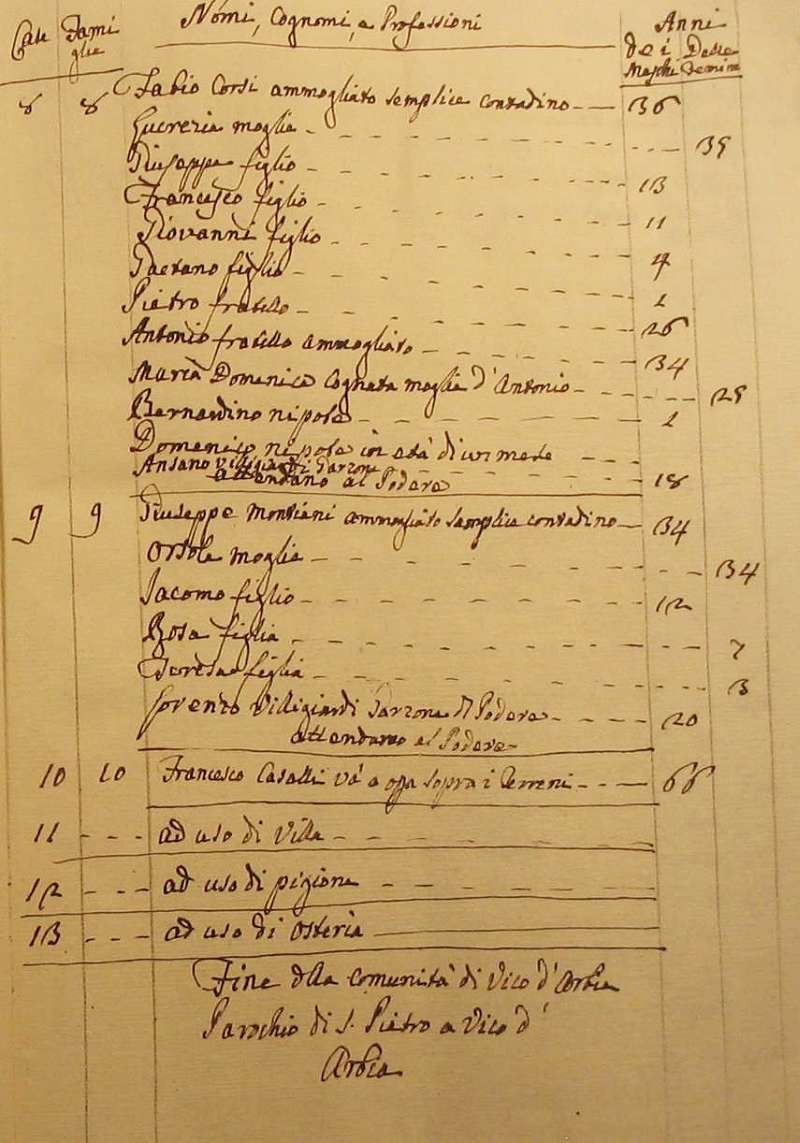 Case Fami Nomi, Cognomi, e Professioni Anni
glie dei Delle
Maschi Femine
8 8 Fabio Corsi ammogliato semplice contadino 36
Lucrezia moglie 39
Giuseppe figlio 13
Francesco figlio 11
Giovanni figlio
Gaetano figlio 1
Pietro fratello 26
Antonio fratello ammogliato 34
Maria Domenica Cognata moglie d'Antonio 29
Bernardino nipote 1
Domenico nipote in età di un mese
Ansano Viligiardi Garzone 18
attendano al Podere
9 9 Giuseppe Montiani ammogliato semplice contadino 34
Orsola moglie 34
Jacomo figlio 12
Rosa figlia 7
Teresa figlia 3
Lorenzo Viligiardi Garzone di Podere 20
attendano al Podere
10 10 Francesco Casalli và a opa sopra i Terreni 66
11 ad uso di Villa
12 ad uso di pigione
13 ad uso di Osteria
Fine della comunità di Vico d'Arbia
Parochio di S. Pietro a Vico d'
Arbia